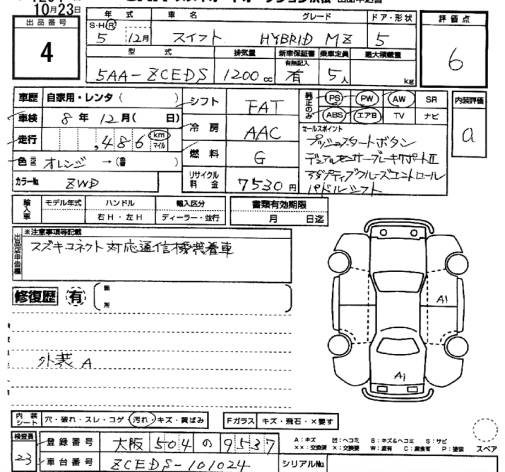 10月23日
出品番号
4
年式 車名 グレード ドア・形状
S・H・R
5 12月 スイフト HYBRID MZ 5
型式 排気量 新車保証書 乗車定員 最大積載量
有無記入
5AA-ZCEDS 1200cc 有 5人 kg
評価点
6
車歴 自家用・レンタ( )
車検 8年12月( 日)
走行 ,486 km マイル
色 オレンジ →( )
カラーNo. ZWD
シフト FAT
冷房 AAC
燃料 G
リサイクル料金 7530円
純正のみ PS PW AW SR
ABS エアB TV ナビ
内装評価
a
セールスポイント
プッシュスタートボタン
デュアルセンサーブレーキサポートII
アダプティブクルーズコントロール
パドルシフト
輸入車 モデル年式 ハンドル 輸入区分
右H・左H ディーラー・並行
書類有効期限
月 日迄
出品店申告欄
※注意事項等記載
スズキコネクト対応通信機装着車
修復歴 有
箇所
外装 A
A1
A1
内装シート 穴・破れ・スレ・コゲ・汚れ・キズ・黄ばみ
Fガラス キズ・飛石・×要す
検査員
23
登録番号 大阪 504 の 9537
車台番号 ZCEDS-101024
A:キズ 凹:ヘコミ B:キズ&ヘコミ S:サビ
××:交換済 ×:交換要 W:波有 C:腐食有 P:塗装
スペア
シリアルNo.